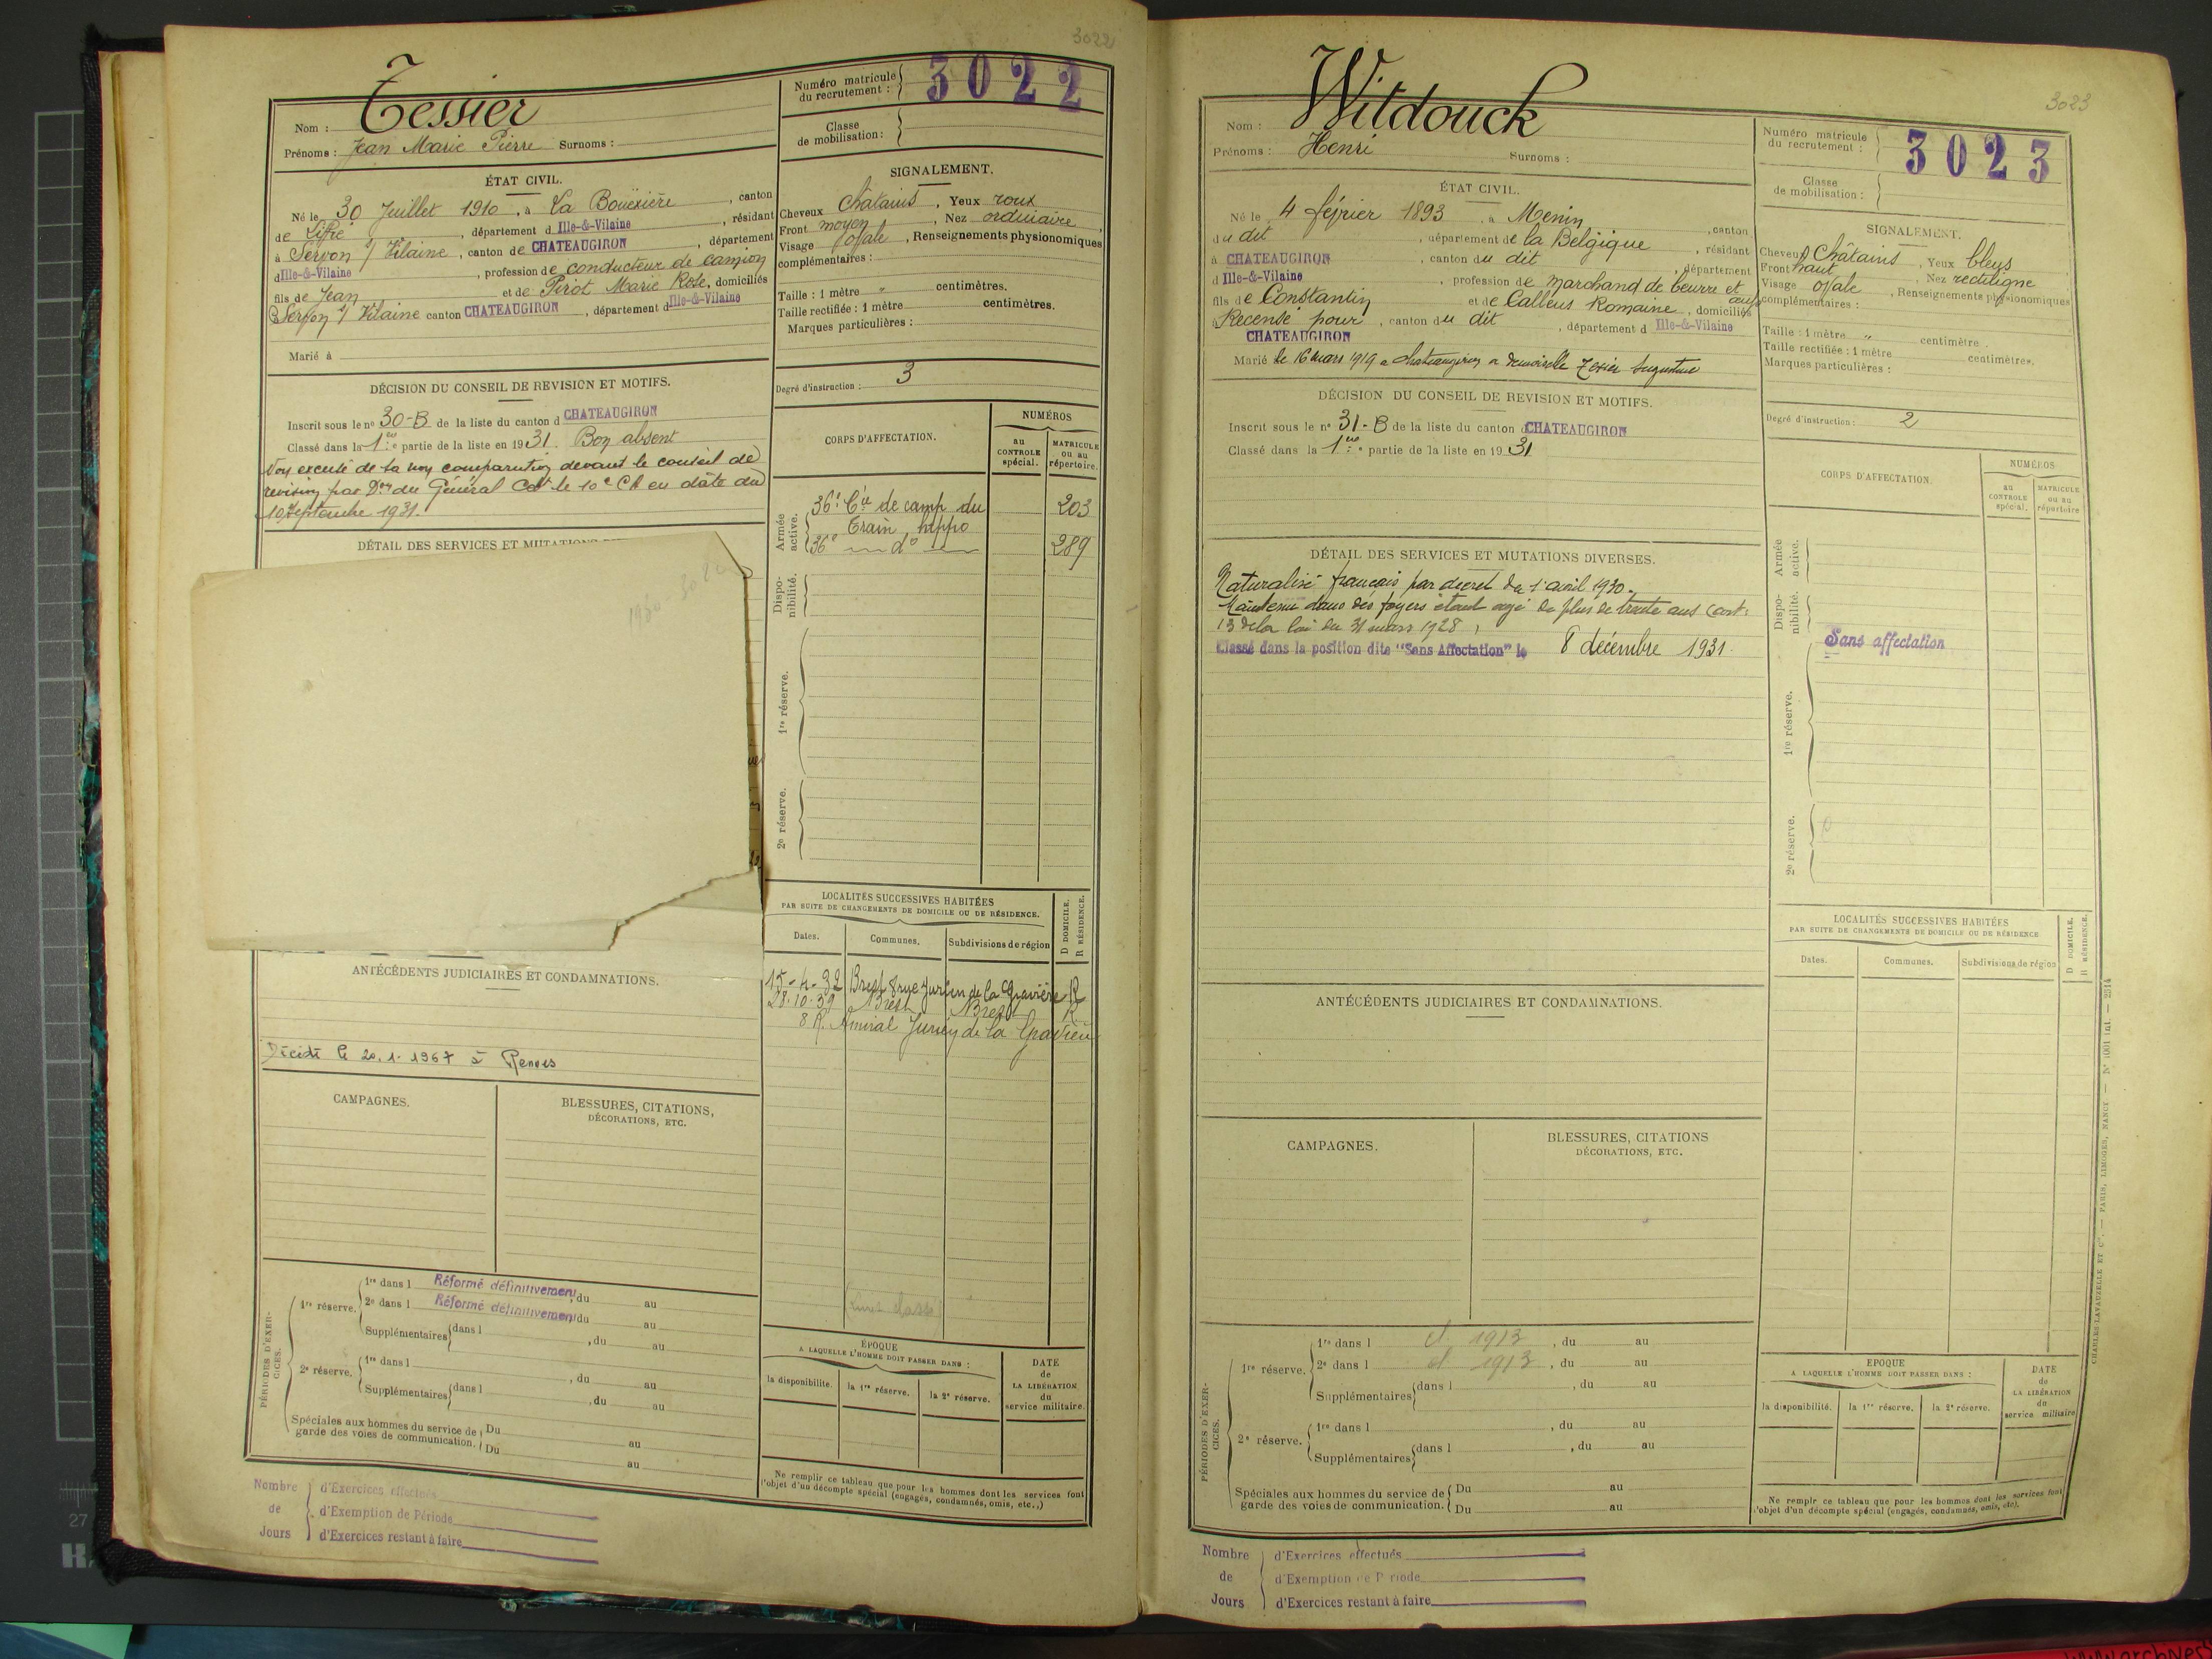 3022
Nom : Tessier
Prénoms : Jean Marie Pierre Surnoms :
Numéro matricule du recrutement : 3022
Classe de mobilisation :
ÉTAT CIVIL.
Né le 30 Juillet 1910, à La Bouëxière, canton
de Liffré, département d Ille-&-Vilaine, résidant
à Servon s/ Vilaine, canton de CHATEAUGIRON, département
d Ille-&-Vilaine, profession de conducteur de camion
fils de Jean et de Pirot Marie Rose, domiciliés
à Servon s/ Vilaine canton CHATEAUGIRON, département d Ille-&-Vilaine
Marié à
SIGNALEMENT.
Cheveux Châtains, Yeux roux
Front moyen, Nez ordinaire,
Visage ovale, Renseignements physionomiques
complémentaires :
Taille : 1 mètre " centimètres.
Taille rectifiée : 1 mètre centimètres.
Marques particulières :
Degré d'instruction : 3
DÉCISION DU CONSEIL DE REVISION ET MOTIFS.
Inscrit sous le nº 30-B de la liste du canton d CHATEAUGIRON
Classé dans la 1re partie de la liste en 1931. Bon absent
Non excusé de sa non comparution devant le conseil de
revision par Don du Général Cdt le 10e CA en date du
10 Septembre 1931.
DÉTAIL DES SERVICES ET MUTATIONS
CORPS D'AFFECTATION.
NUMÉROS
au CONTROLE spécial.
MATRICULE ou au répertoire.
Armée active.
36e Cie de camp du 203
Train hippo
36e — do — 289
Disponibilité.
1re réserve.
2e réserve.
LOCALITÉS SUCCESSIVES HABITÉES
PAR SUITE DE CHANGEMENTS DE DOMICILE OU DE RÉSIDENCE.
Dates.
Communes.
Subdivisions de région
D DOMICILE.
R RÉSIDENCE.
15-4-32 Brest 8 rue Jurien de la Gravière R
28.10.39 Brest Brest R
8 R. Amiral Jurien de la Gravière
ANTÉCÉDENTS JUDICIAIRES ET CONDAMNATIONS.
Décédé le 20.1.1967 à Rennes
CAMPAGNES.
BLESSURES, CITATIONS, DÉCORATIONS, ETC.
PÉRIODES D'EXERCICES.
1re réserve.
1re dans l Réformé définitivement, du au
2e dans l Réformé définitivement, du au
Supplémentaires dans l , du au
2e réserve.
1re dans l , du au
Supplémentaires dans l , du au
Spéciales aux hommes du service de garde des voies de communication.
Du au
Du au
ÉPOQUE
A LAQUELLE L'HOMME DOIT PASSER DANS :
la disponibilité.
la 1re réserve.
la 2e réserve.
DATE de LA LIBÉRATION du service militaire.
Ne remplir ce tableau que pour les hommes dont les services font
l'objet d'un décompte spécial (engagés, condamnés, omis, etc.,)
Nombre de Jours
d'Exercices effectués
d'Exemption de Période
d'Exercices restant à faire
3023
Nom : Wildouck
Prénoms : Henri Surnoms :
Numéro matricule du recrutement : 3023
Classe de mobilisation :
ÉTAT CIVIL.
Né le 4 février 1893, à Menin, canton
du dit, département de la Belgique, résidant
à CHATEAUGIRON, canton du dit, département
d Ille-&-Vilaine, profession de marchand de beurre et œufs
fils de Constantin et de Calleus Romaine, domiciliés
à Recensé pour, canton du dit, département d Ille-&-Vilaine
CHATEAUGIRON
Marié le 16 mars 1919 a chateaugiron a demoiselle Augustine
SIGNALEMENT.
Cheveux Châtains, Yeux bleus
Front haut, Nez rectiligne
Visage ovale, Renseignements physionomiques
complémentaires :
Taille : 1 mètre " centimètre.
Taille rectifiée : 1 mètre centimètres.
Marques particulières :
Degré d'instruction : 2
DÉCISION DU CONSEIL DE REVISION ET MOTIFS.
Inscrit sous le nº 31-B de la liste du canton d CHATEAUGIRON
Classé dans la 1re partie de la liste en 1931
DÉTAIL DES SERVICES ET MUTATIONS DIVERSES.
Naturalisé français par decret du 1 avril 1930.
Maintenu dans ses foyers étant agé de plus de trente ans (art.
13 de la loi du 31 mars 1928,
Classé dans la position dite "Sans Affectation" le 8 décembre 1931.
CORPS D'AFFECTATION.
NUMÉROS
au CONTROLE spécial.
MATRICULE ou au répertoire
Armée active.
Disponibilité.
Sans affectation
1re réserve.
2e réserve.
LOCALITÉS SUCCESSIVES HABITÉES
PAR SUITE DE CHANGEMENTS DE DOMICILE OU DE RÉSIDENCE
Dates.
Communes.
Subdivisions de région
D DOMICILE.
R RÉSIDENCE.
ANTÉCÉDENTS JUDICIAIRES ET CONDAMNATIONS.
CAMPAGNES.
BLESSURES, CITATIONS DÉCORATIONS, ETC.
PÉRIODES D'EXERCICES.
1re réserve.
1re dans l cl. 1913, du au
2e dans l cl. 1913, du au
Supplémentaires dans l , du au
2e réserve.
1re dans l , du au
Supplémentaires dans l , du au
Spéciales aux hommes du service de garde des voies de communication.
Du au
Du au
EPOQUE
A LAQUELLE L'HOMME DOIT PASSER DANS :
la disponibilité.
la 1re réserve.
la 2e réserve.
DATE de LA LIBÉRATION de service militaire
Ne remplir ce tableau que pour les hommes dont les services font
l'objet d'un décompte spécial (engagés, condamnés, omis, etc).
Nombre de Jours
d'Exercices effectués
d'Exemption de Période
d'Exercices restant à faire
CHARLES-LAVAUZELLE ET Cie. — PARIS, LIMOGES, NANCY